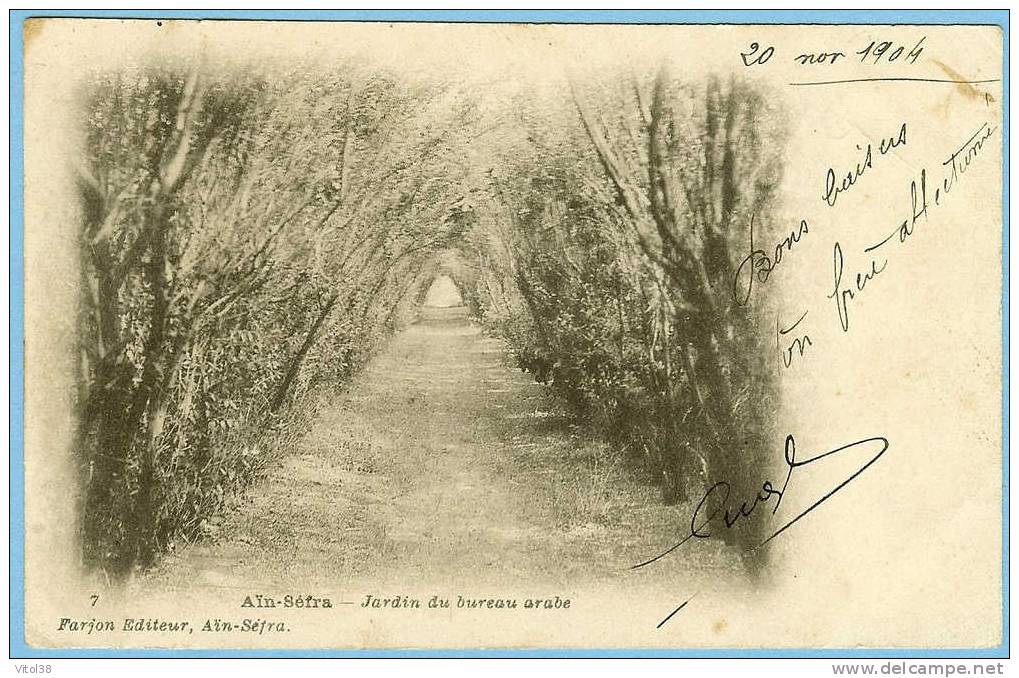 20 nov 1904
Bons baisers
Ton frère affectionné
7 Aïn-Séfra — Jardin du bureau arabe
Farjon Editeur, Aïn-Séfra.
Vitol38
www.delcampe.net